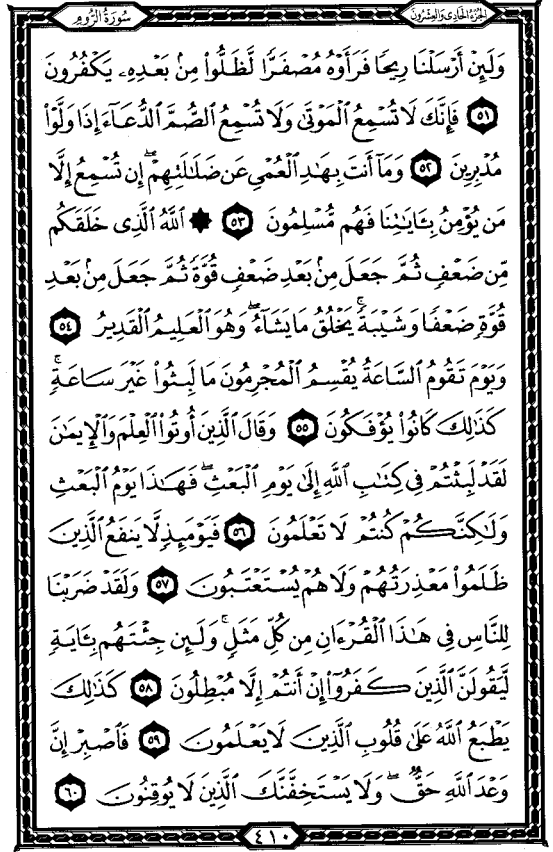 الجزء الحادي والعشرون
سورة الروم
وَلَئِنْ أَرْسَلْنَا رِيحًا فَرَأَوْهُ مُصْفَرًّا لَّظَلُّوا۟ مِنۢ بَعْدِهِۦ يَكْفُرُونَ
٥١ فَإِنَّكَ لَا تُسْمِعُ ٱلْمَوْتَىٰ وَلَا تُسْمِعُ ٱلصُّمَّ ٱلدُّعَآءَ إِذَا وَلَّوْا۟
مُدْبِرِينَ ٥٢ وَمَآ أَنتَ بِهَٰدِ ٱلْعُمْىِ عَن ضَلَٰلَتِهِمْ ۖ إِن تُسْمِعُ إِلَّا
مَن يُؤْمِنُ بِـَٔايَٰتِنَا فَهُم مُّسْلِمُونَ ٥٣ ۞ ٱللَّهُ ٱلَّذِى خَلَقَكُم
مِّن ضَعْفٍ ثُمَّ جَعَلَ مِنۢ بَعْدِ ضَعْفٍ قُوَّةً ثُمَّ جَعَلَ مِنۢ بَعْدِ
قُوَّةٍ ضَعْفًا وَشَيْبَةً ۚ يَخْلُقُ مَا يَشَآءُ ۖ وَهُوَ ٱلْعَلِيمُ ٱلْقَدِيرُ ٥٤
وَيَوْمَ تَقُومُ ٱلسَّاعَةُ يُقْسِمُ ٱلْمُجْرِمُونَ مَا لَبِثُوا۟ غَيْرَ سَاعَةٍ ۚ
كَذَٰلِكَ كَانُوا۟ يُؤْفَكُونَ ٥٥ وَقَالَ ٱلَّذِينَ أُوتُوا۟ ٱلْعِلْمَ وَٱلْإِيمَٰنَ
لَقَدْ لَبِثْتُمْ فِى كِتَٰبِ ٱللَّهِ إِلَىٰ يَوْمِ ٱلْبَعْثِ ۖ فَهَٰذَا يَوْمُ ٱلْبَعْثِ
وَلَٰكِنَّكُمْ كُنتُمْ لَا تَعْلَمُونَ ٥٦ فَيَوْمَئِذٍ لَّا يَنفَعُ ٱلَّذِينَ
ظَلَمُوا۟ مَعْذِرَتُهُمْ وَلَا هُمْ يُسْتَعْتَبُونَ ٥٧ وَلَقَدْ ضَرَبْنَا
لِلنَّاسِ فِى هَٰذَا ٱلْقُرْءَانِ مِن كُلِّ مَثَلٍ ۚ وَلَئِن جِئْتَهُم بِـَٔايَةٍ
لَّيَقُولَنَّ ٱلَّذِينَ كَفَرُوٓا۟ إِنْ أَنتُمْ إِلَّا مُبْطِلُونَ ٥٨ كَذَٰلِكَ
يَطْبَعُ ٱللَّهُ عَلَىٰ قُلُوبِ ٱلَّذِينَ لَا يَعْلَمُونَ ٥٩ فَٱصْبِرْ إِنَّ
وَعْدَ ٱللَّهِ حَقٌّ ۖ وَلَا يَسْتَخِفَّنَّكَ ٱلَّذِينَ لَا يُوقِنُونَ ٦٠
٤١٠